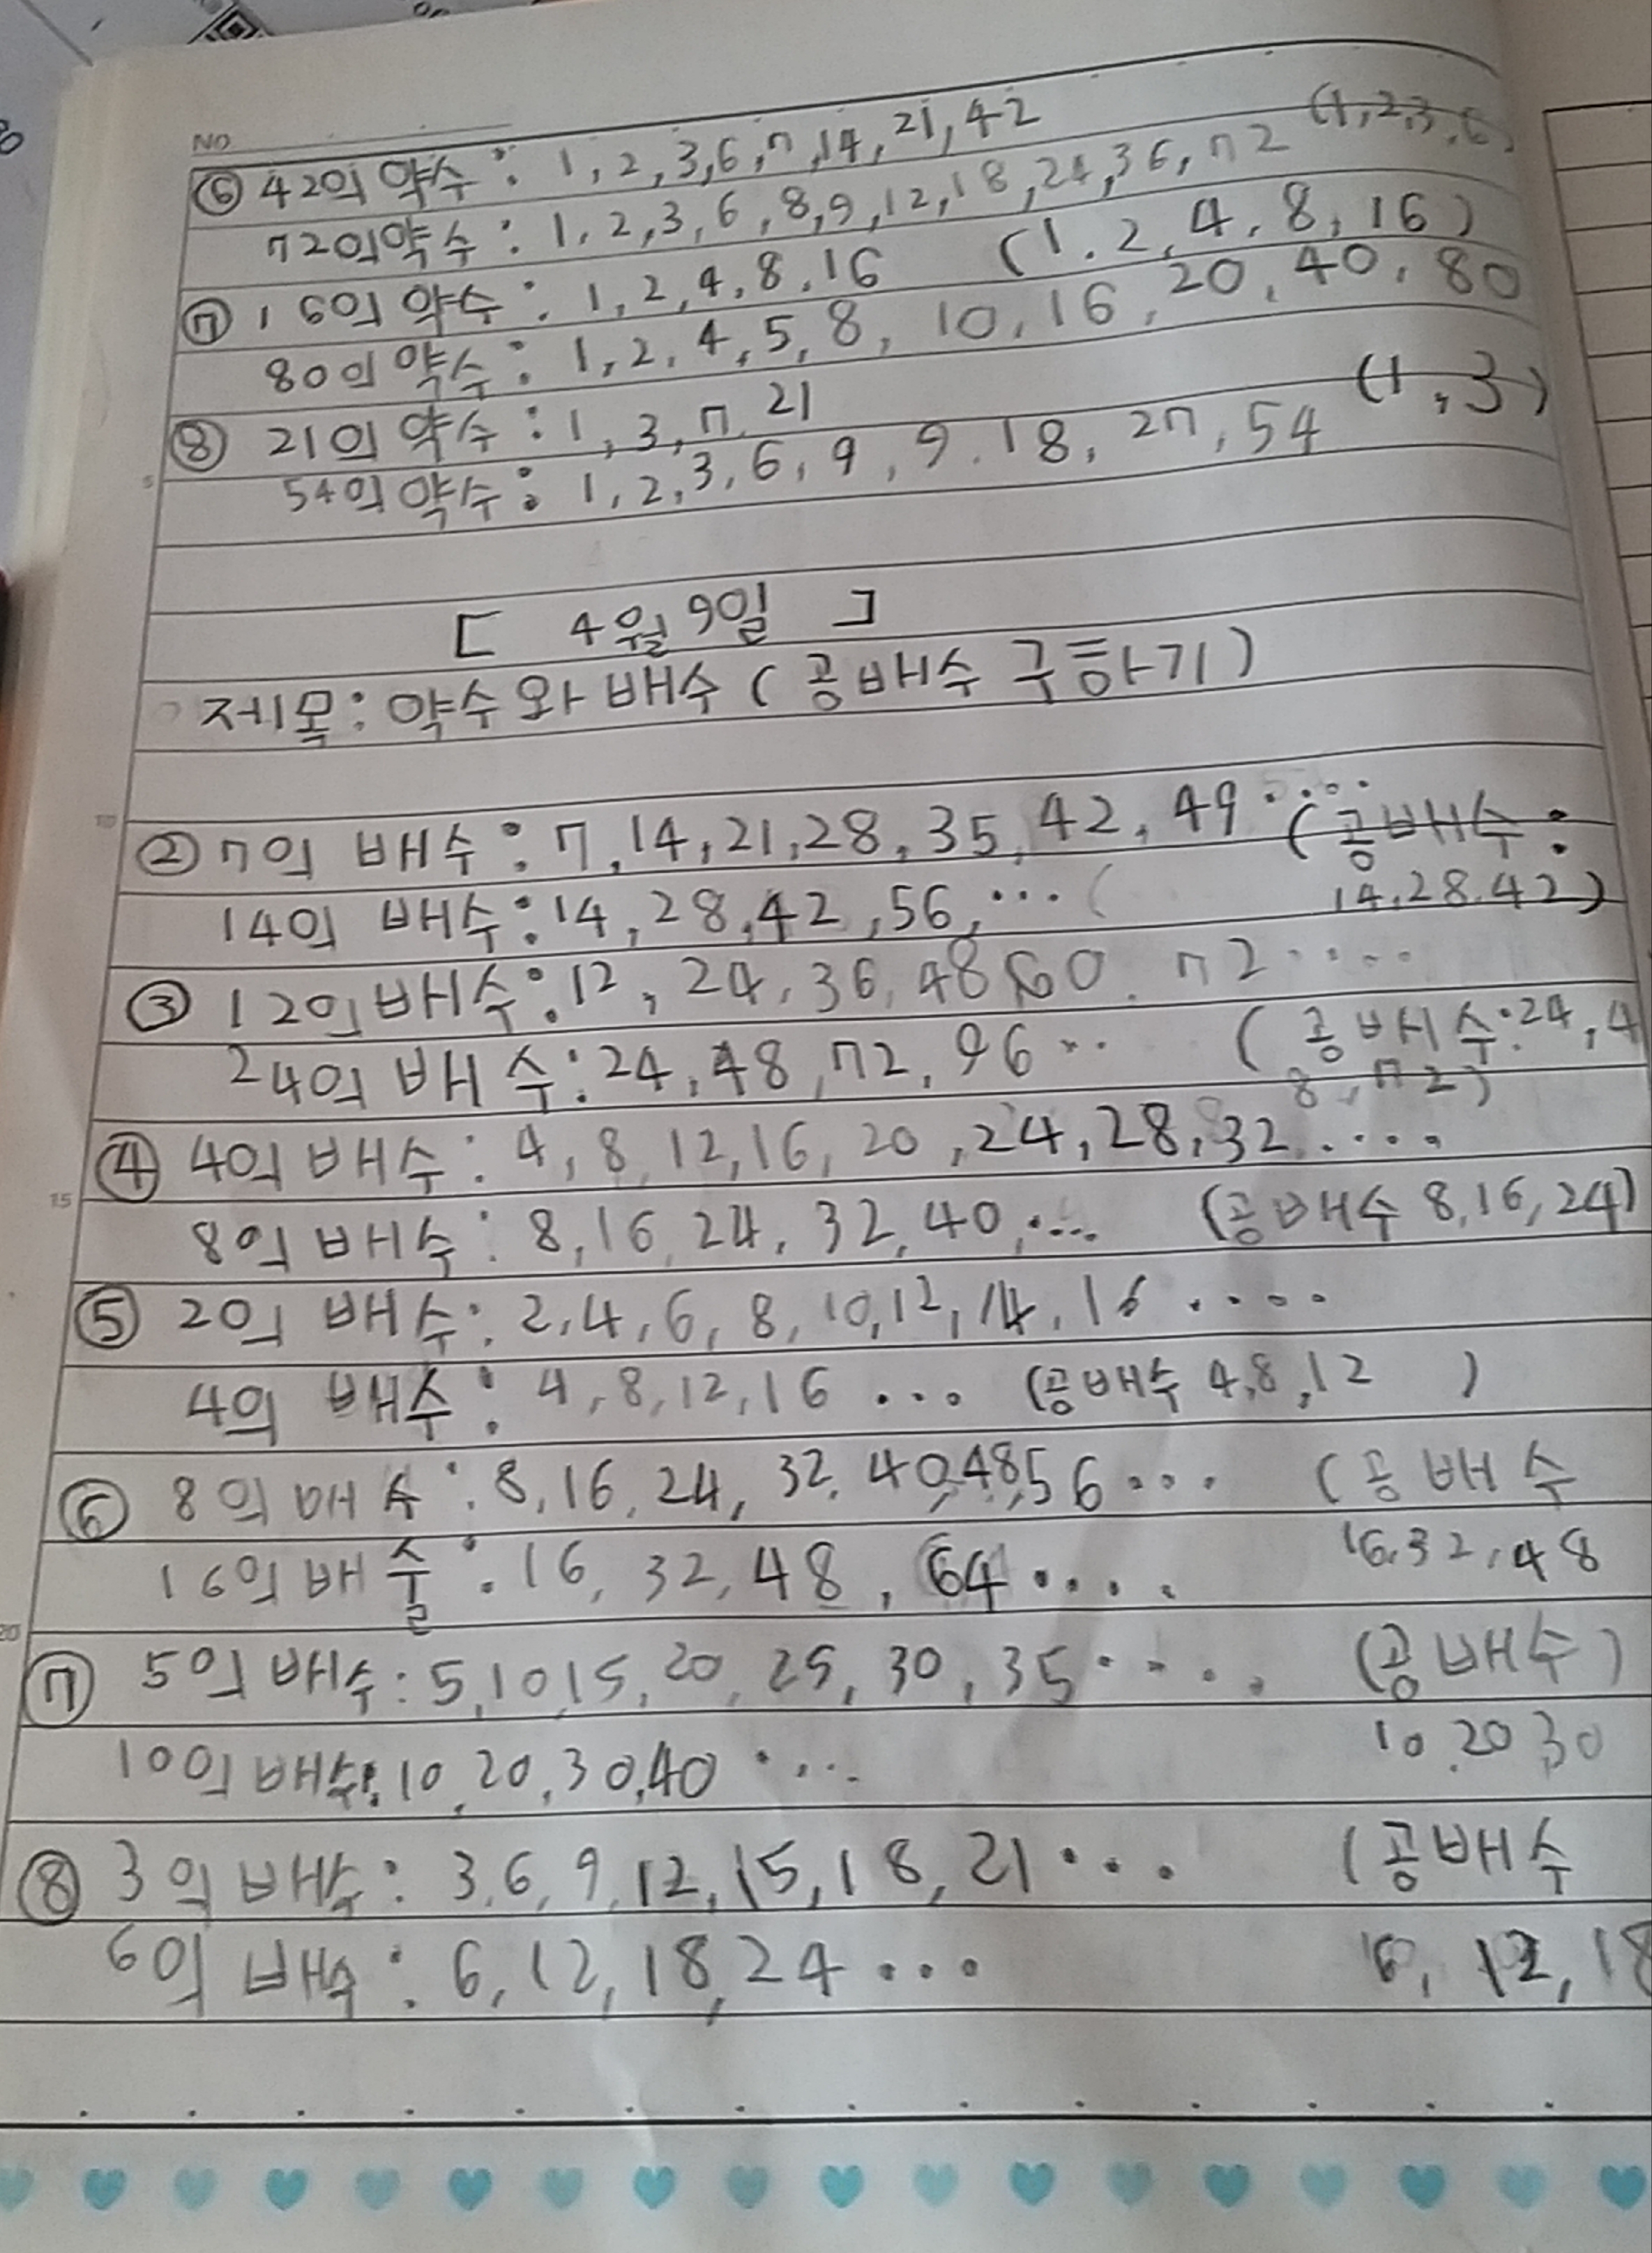 NO
⑥ 42의 약수 : 1, 2, 3, 6, 7, 14, 21, 42
72의약수 : 1, 2, 3, 6, 8, 9, 12, 18, 24, 36, 72 (1, 2, 3, 6)
⑦ 16의 약수 : 1, 2, 4, 8, 16 (1. 2, 4, 8, 16)
80의 약수 : 1, 2, 4, 5, 8, 10, 16, 20, 40, 80
⑧ 21의 약수 : 1, 3, 7, 21 (1, 3)
5 54의 약수 : 1, 2, 3, 6, 9, 9. 18, 27, 54
[ 4월 9일 ]
제목 : 약수와 배수 ( 공배수 구하기 )
10
② 7의 배수 : 7, 14, 21, 28, 35, 42, 49 .... ( 공배수 :
14의 배수 : 14, 28, 42, 56, ... ( 14. 28. 42 )
③ 12의 배수 : 12, 24, 36, 48 60. 72 ....
24의 배수 : 24, 48, 72, 96 .. ( 공배수 : 24, 4
8, 72 )
④ 4의 배수 : 4, 8, 12, 16, 20, 24, 28, 32 ....
15 8의 배수 : 8, 16, 24, 32, 40, .... (공배수 8, 16, 24)
⑤ 2의 배수 : 2, 4, 6, 8, 10, 12, 14, 16 ....
4의 배수 : 4, 8, 12, 16 ... (공배수 4, 8, 12 )
⑥ 8의 배수 : 8, 16, 24, 32, 40, 48, 56 ... ( 공배수
16의 배술 : 16, 32, 48, 64 .... 16. 32, 48
20
⑦ 5의 배수 : 5, 10, 15, 20, 25, 30, 35 .... (공배수)
10의 배수 : 10, 20, 30, 40 .... 10. 20 30
⑧ 3의 배수 : 3, 6, 9, 12, 15, 18, 21 ... ( 공배수
6의 배수 : 6, 12, 18, 24 ... 6, 12, 18